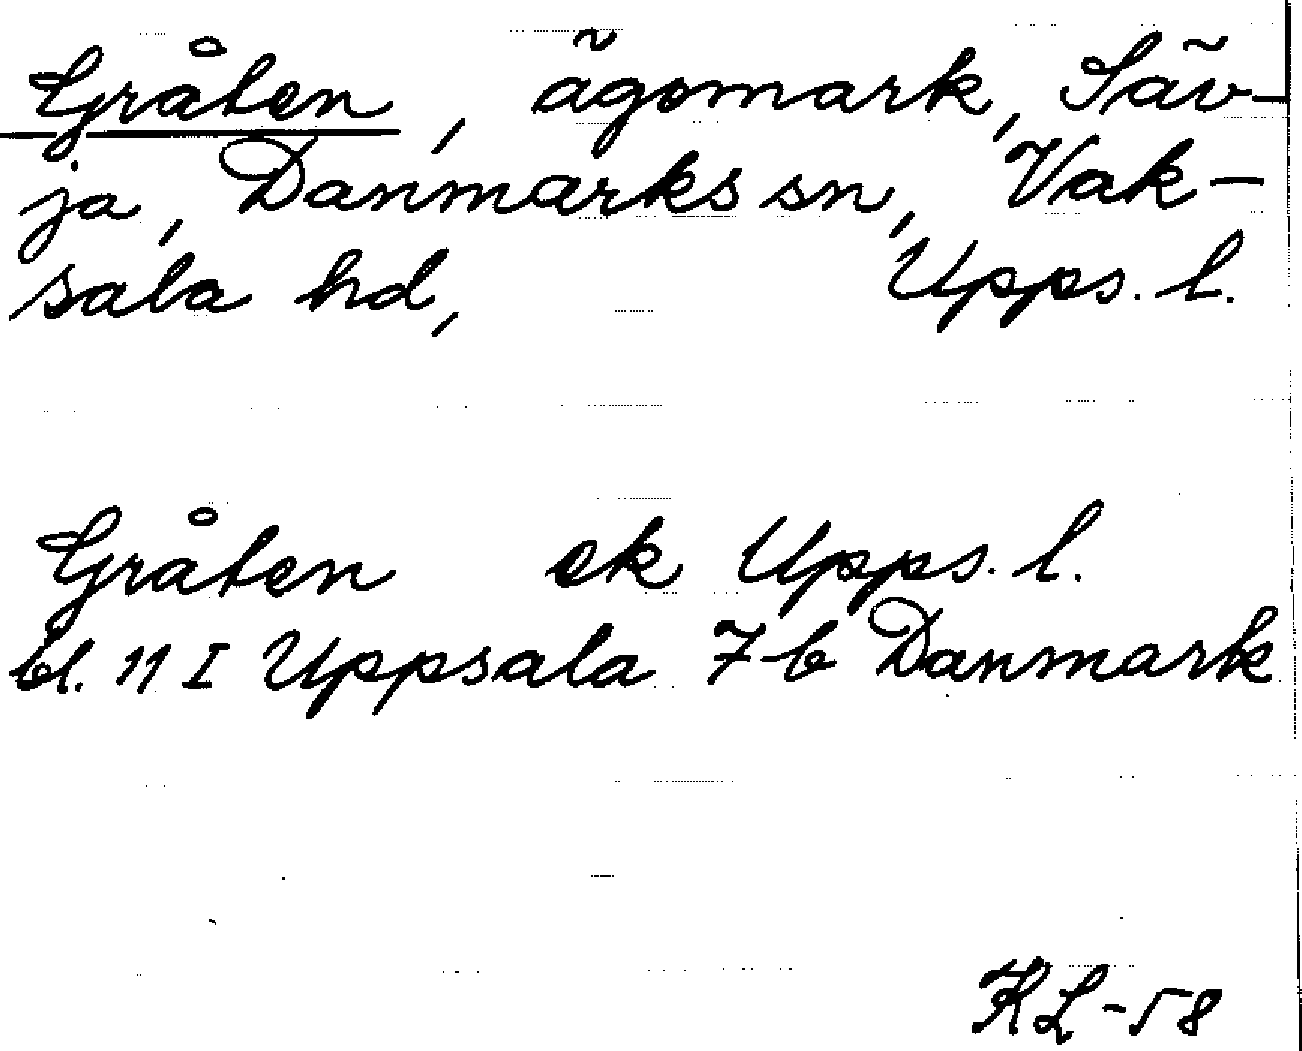 Gråten, ägomark, Säv-
ja, Danmarks sn, Vak-
sala hd, Upps. l.
Gråten ek Upps. l.
bl. 11 I Uppsala 7b Danmark
KL-58